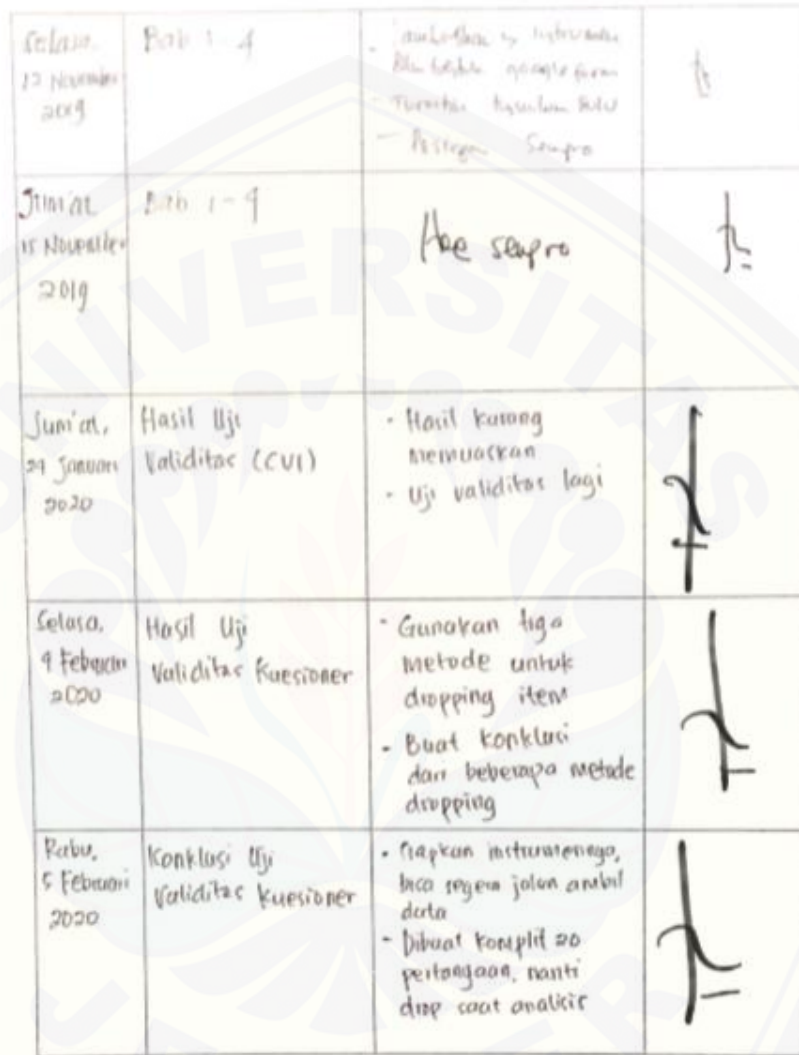 Selasa,
12 November
2019
Bab 1-4
google form
- Turnitin
- Sempro
Jum'at
15 November
2019
Bab 1-4
Acc sempro
Jum'at,
24 Januari
2020
Hasil Uji
Validitas (CVI)
- Hasil kurang
memuaskan
- Uji validitas lagi
Selasa,
4 Februari
2020
Hasil Uji
Validitas Kuesioner
- Gunakan tiga
metode untuk
dropping item
- Buat konklusi
dari beberapa metode
dropping
Rabu,
5 Februari
2020
Konklusi Uji
Validitas Kuesioner
- Siapkan instrumennya,
bisa segera jalan ambil
data
- Dibuat komplit 20
pertanyaan, nanti
drop saat analisis
UNIVERSITAS
JEMBER